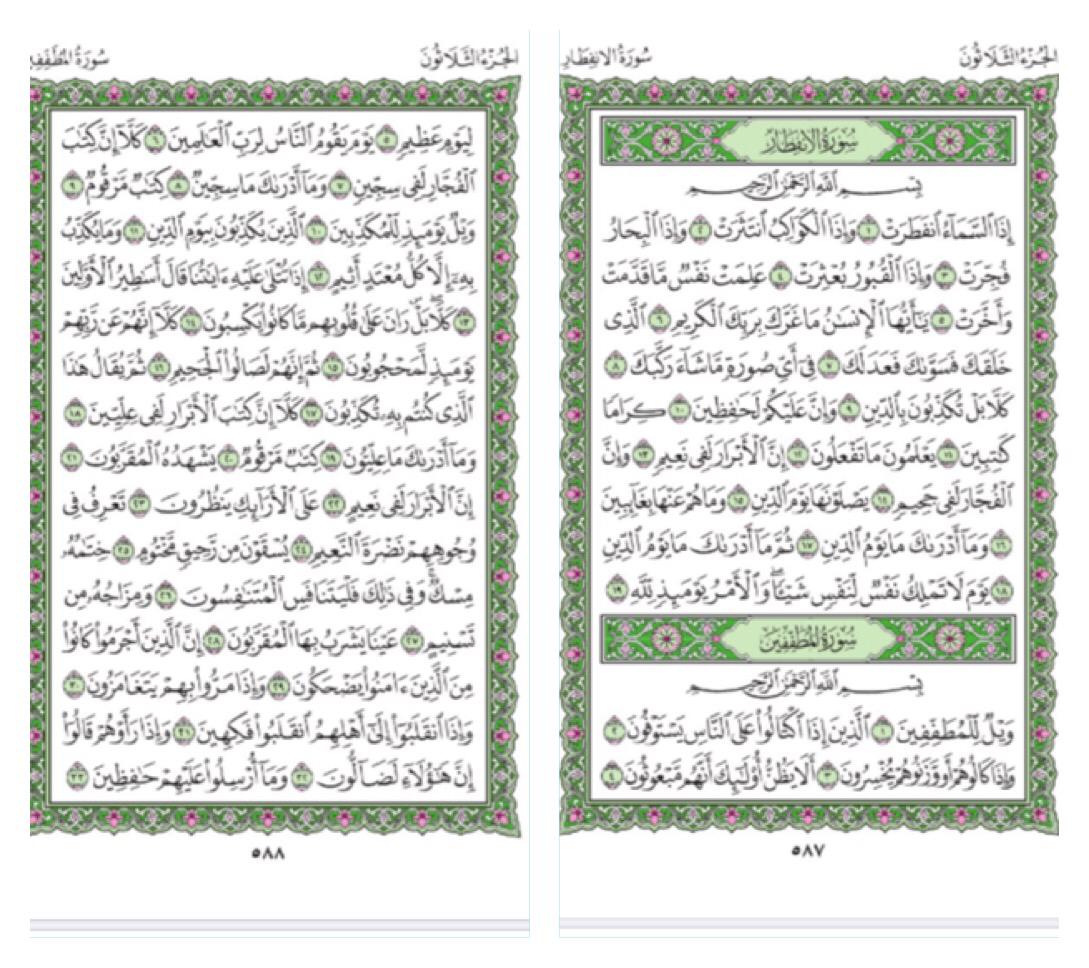 الجزء الثلاثون
سورة الانفطار
سُورَةُ الِانفِطَارِ
بِسْمِ ٱللَّهِ ٱلرَّحْمَٰنِ ٱلرَّحِيمِ
إِذَا ٱلسَّمَآءُ ٱنفَطَرَتْ ١ وَإِذَا ٱلْكَوَاكِبُ ٱنتَثَرَتْ ٢ وَإِذَا ٱلْبِحَارُ
فُجِّرَتْ ٣ وَإِذَا ٱلْقُبُورُ بُعْثِرَتْ ٤ عَلِمَتْ نَفْسٌ مَّا قَدَّمَتْ
وَأَخَّرَتْ ٥ يَٰٓأَيُّهَا ٱلْإِنسَٰنُ مَا غَرَّكَ بِرَبِّكَ ٱلْكَرِيمِ ٦ ٱلَّذِى
خَلَقَكَ فَسَوَّىٰكَ فَعَدَلَكَ ٧ فِىٓ أَىِّ صُورَةٍ مَّا شَآءَ رَكَّبَكَ ٨
كَلَّا بَلْ تُكَذِّبُونَ بِٱلدِّينِ ٩ وَإِنَّ عَلَيْكُمْ لَحَٰفِظِينَ ١٠ كِرَامًا
كَٰتِبِينَ ١١ يَعْلَمُونَ مَا تَفْعَلُونَ ١٢ إِنَّ ٱلْأَبْرَارَ لَفِى نَعِيمٍ ١٣ وَإِنَّ
ٱلْفُجَّارَ لَفِى جَحِيمٍ ١٤ يَصْلَوْنَهَا يَوْمَ ٱلدِّينِ ١٥ وَمَا هُمْ عَنْهَا بِغَآئِبِينَ
١٦ وَمَآ أَدْرَىٰكَ مَا يَوْمُ ٱلدِّينِ ١٧ ثُمَّ مَآ أَدْرَىٰكَ مَا يَوْمُ ٱلدِّينِ
١٨ يَوْمَ لَا تَمْلِكُ نَفْسٌ لِّنَفْسٍ شَيْـًٔا ۖ وَٱلْأَمْرُ يَوْمَئِذٍ لِّلَّهِ ١٩
سُورَةُ المُطَفِّفِينَ
بِسْمِ ٱللَّهِ ٱلرَّحْمَٰنِ ٱلرَّحِيمِ
وَيْلٌ لِّلْمُطَفِّفِينَ ١ ٱلَّذِينَ إِذَا ٱكْتَالُوا۟ عَلَى ٱلنَّاسِ يَسْتَوْفُونَ ٢
وَإِذَا كَالُوهُمْ أَو وَّزَنُوهُمْ يُخْسِرُونَ ٣ أَلَا يَظُنُّ أُو۟لَٰٓئِكَ أَنَّهُم مَّبْعُوثُونَ ٤
٥٨٧
الجزء الثلاثون
سورة المطففي
لِيَوْمٍ عَظِيمٍ ٥ يَوْمَ يَقُومُ ٱلنَّاسُ لِرَبِّ ٱلْعَٰلَمِينَ ٦ كَلَّآ إِنَّ كِتَٰبَ
ٱلْفُجَّارِ لَفِى سِجِّينٍ ٧ وَمَآ أَدْرَىٰكَ مَا سِجِّينٌ ٨ كِتَٰبٌ مَّرْقُومٌ ٩
وَيْلٌ يَوْمَئِذٍ لِّلْمُكَذِّبِينَ ١٠ ٱلَّذِينَ يُكَذِّبُونَ بِيَوْمِ ٱلدِّينِ ١١ وَمَا يُكَذِّبُ
بِهِۦٓ إِلَّا كُلُّ مُعْتَدٍ أَثِيمٍ ١٢ إِذَا تُتْلَىٰ عَلَيْهِ ءَايَٰتُنَا قَالَ أَسَٰطِيرُ ٱلْأَوَّلِينَ
١٣ كَلَّا ۖ بَلْ ۜ رَانَ عَلَىٰ قُلُوبِهِم مَّا كَانُوا۟ يَكْسِبُونَ ١٤ كَلَّآ إِنَّهُمْ عَن رَّبِّهِمْ
يَوْمَئِذٍ لَّمَحْجُوبُونَ ١٥ ثُمَّ إِنَّهُمْ لَصَالُوا۟ ٱلْجَحِيمِ ١٦ ثُمَّ يُقَالُ هَٰذَا
ٱلَّذِى كُنتُم بِهِۦ تُكَذِّبُونَ ١٧ كَلَّآ إِنَّ كِتَٰبَ ٱلْأَبْرَارِ لَفِى عِلِّيِّينَ ١٨
وَمَآ أَدْرَىٰكَ مَا عِلِّيُّونَ ١٩ كِتَٰبٌ مَّرْقُومٌ ٢٠ يَشْهَدُهُ ٱلْمُقَرَّبُونَ ٢١
إِنَّ ٱلْأَبْرَارَ لَفِى نَعِيمٍ ٢٢ عَلَى ٱلْأَرَآئِكِ يَنظُرُونَ ٢٣ تَعْرِفُ فِى
وُجُوهِهِمْ نَضْرَةَ ٱلنَّعِيمِ ٢٤ يُسْقَوْنَ مِن رَّحِيقٍ مَّخْتُومٍ ٢٥ خِتَٰمُهُۥ
مِسْكٌ ۚ وَفِى ذَٰلِكَ فَلْيَتَنَافَسِ ٱلْمُتَنَٰفِسُونَ ٢٦ وَمِزَاجُهُۥ مِن
تَسْنِيمٍ ٢٧ عَيْنًا يَشْرَبُ بِهَا ٱلْمُقَرَّبُونَ ٢٨ إِنَّ ٱلَّذِينَ أَجْرَمُوا۟ كَانُوا۟
مِنَ ٱلَّذِينَ ءَامَنُوا۟ يَضْحَكُونَ ٢٩ وَإِذَا مَرُّوا۟ بِهِمْ يَتَغَامَزُونَ ٣٠
وَإِذَا ٱنقَلَبُوٓا۟ إِلَىٰٓ أَهْلِهِمُ ٱنقَلَبُوا۟ فَكِهِينَ ٣١ وَإِذَا رَأَوْهُمْ قَالُوٓا۟
إِنَّ هَٰٓؤُلَآءِ لَضَآلُّونَ ٣٢ وَمَآ أُرْسِلُوا۟ عَلَيْهِمْ حَٰفِظِينَ ٣٣
٥٨٨